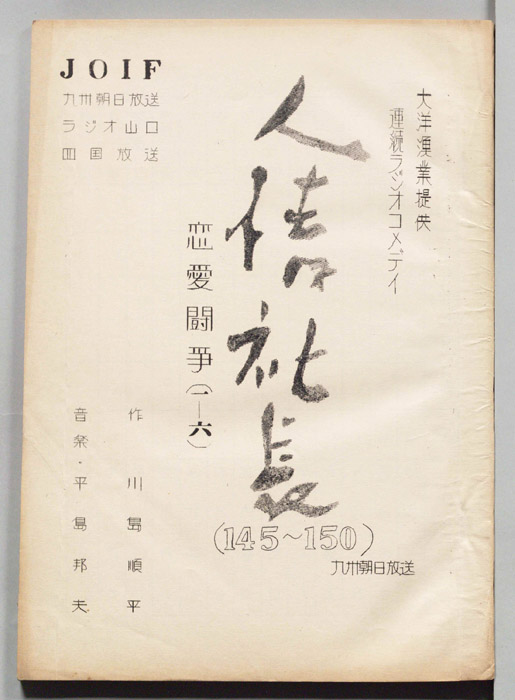 大洋漁業提供
連続ラジオコメデイ
人情社長
恋愛闘爭(一―六)
(145~150)
九州朝日放送
JOIF
九州朝日放送
ラジオ山口
四国放送
作 川島順平
音楽・平島邦夫